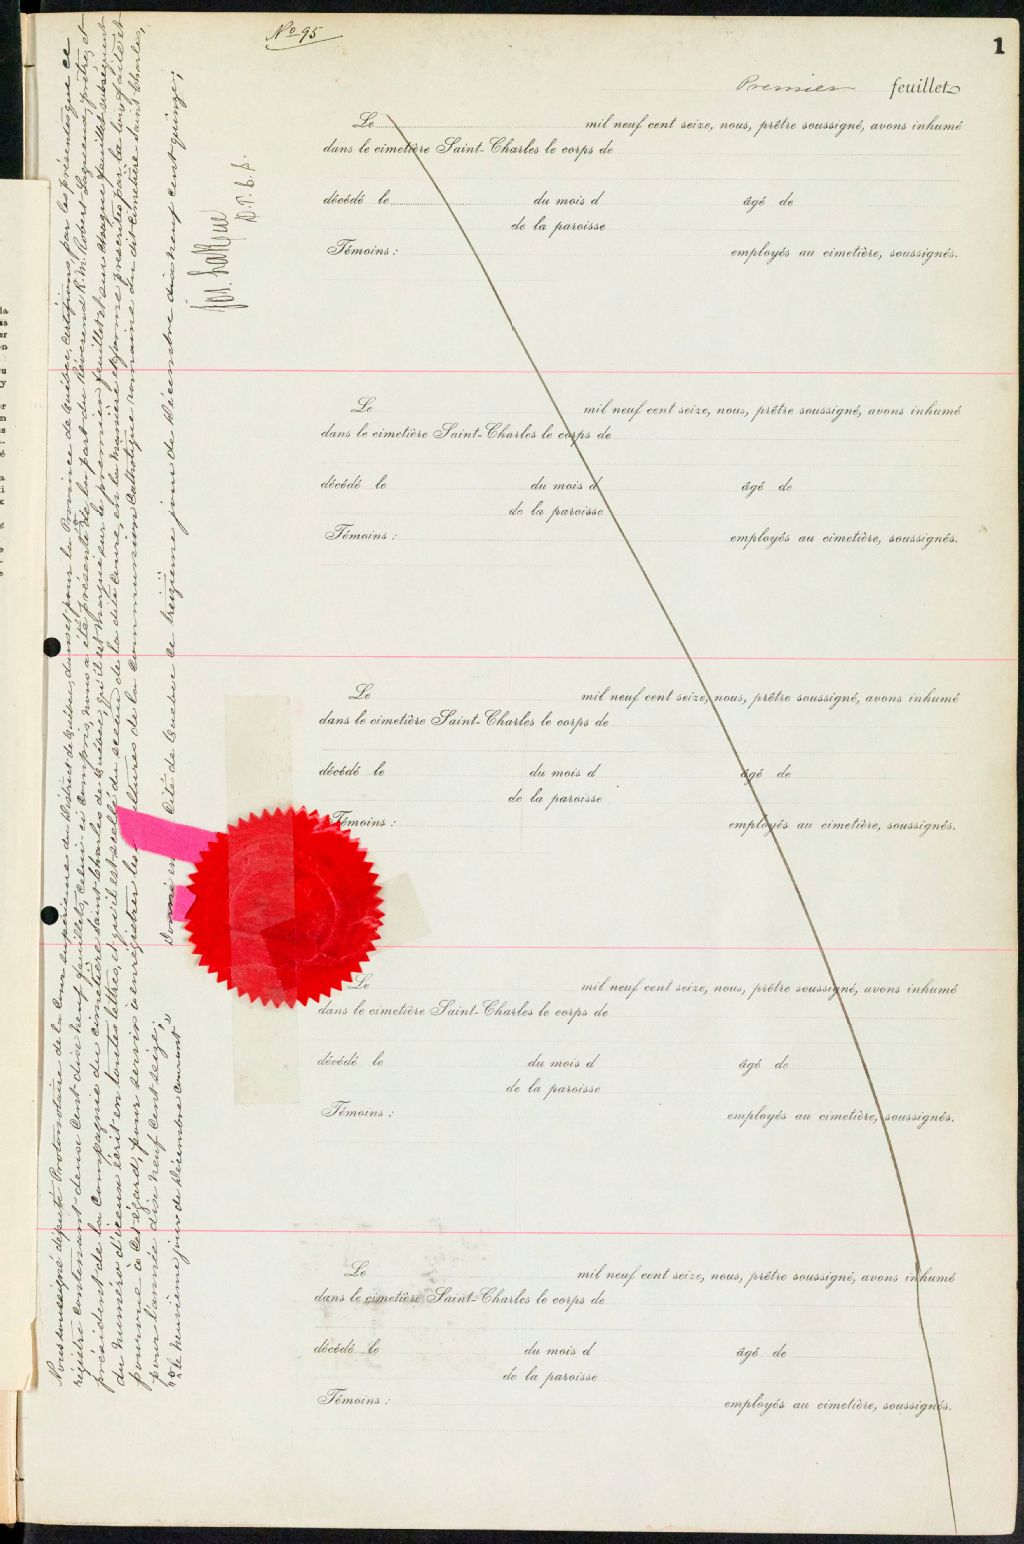 No 95
1
Premier feuillet
Le mil neuf cent seize, nous, prêtre soussigné, avons inhumé
dans le cimetière Saint-Charles le corps de
décédé le du mois d âgé de
de la paroisse
Témoins : employés au cimetière, soussignés.
Le mil neuf cent seize, nous, prêtre soussigné, avons inhumé
dans le cimetière Saint-Charles le corps de
décédé le du mois d âgé de
de la paroisse
Témoins : employés au cimetière, soussignés.
Le mil neuf cent seize, nous, prêtre soussigné, avons inhumé
dans le cimetière Saint-Charles le corps de
décédé le du mois d âgé de
de la paroisse
Témoins : employés au cimetière, soussignés.
Le mil neuf cent seize, nous, prêtre soussigné, avons inhumé
dans le cimetière Saint-Charles le corps de
décédé le du mois d âgé de
de la paroisse
Témoins : employés au cimetière, soussignés.
Le mil neuf cent seize, nous, prêtre soussigné, avons inhumé
dans le cimetière Saint-Charles le corps de
décédé le du mois d âgé de
de la paroisse
Témoins : employés au cimetière, soussignés.
Nous soussigné député Protonotaire de la Cour supérieure du District de Québec, dans et pour la Province de Québec, certifions par les présentes que ce
régistre contenant deux cent dix neuf feuillets, celui-ci compris, nous a été présenté de la part du Révérend R. M. Robert Lagueux, prêtre, et
président de la Compagnie du cimetière Saint Charles de Québec, qu'il est marqué sur le premier feuillet et sur chaque feuillet subséquent
du numéro d'iceux écrit en toutes lettres, et qu'il est scellé du sceau de la dite cour, en la manière et forme prescrites par la loi faite et
pourvue à cet égard, pour servir à enrégistrer les sépultures de la communion Catholique romaine du dit cimetière Saint Charles,
pour l'année dix neuf cent seize;
Donné en Cité de Québec ce treizième jour de Décembre dix neuf cent quinze;
"le neuvième jour de Décembre courant"
Jos. LaRue
D. P. C. S.